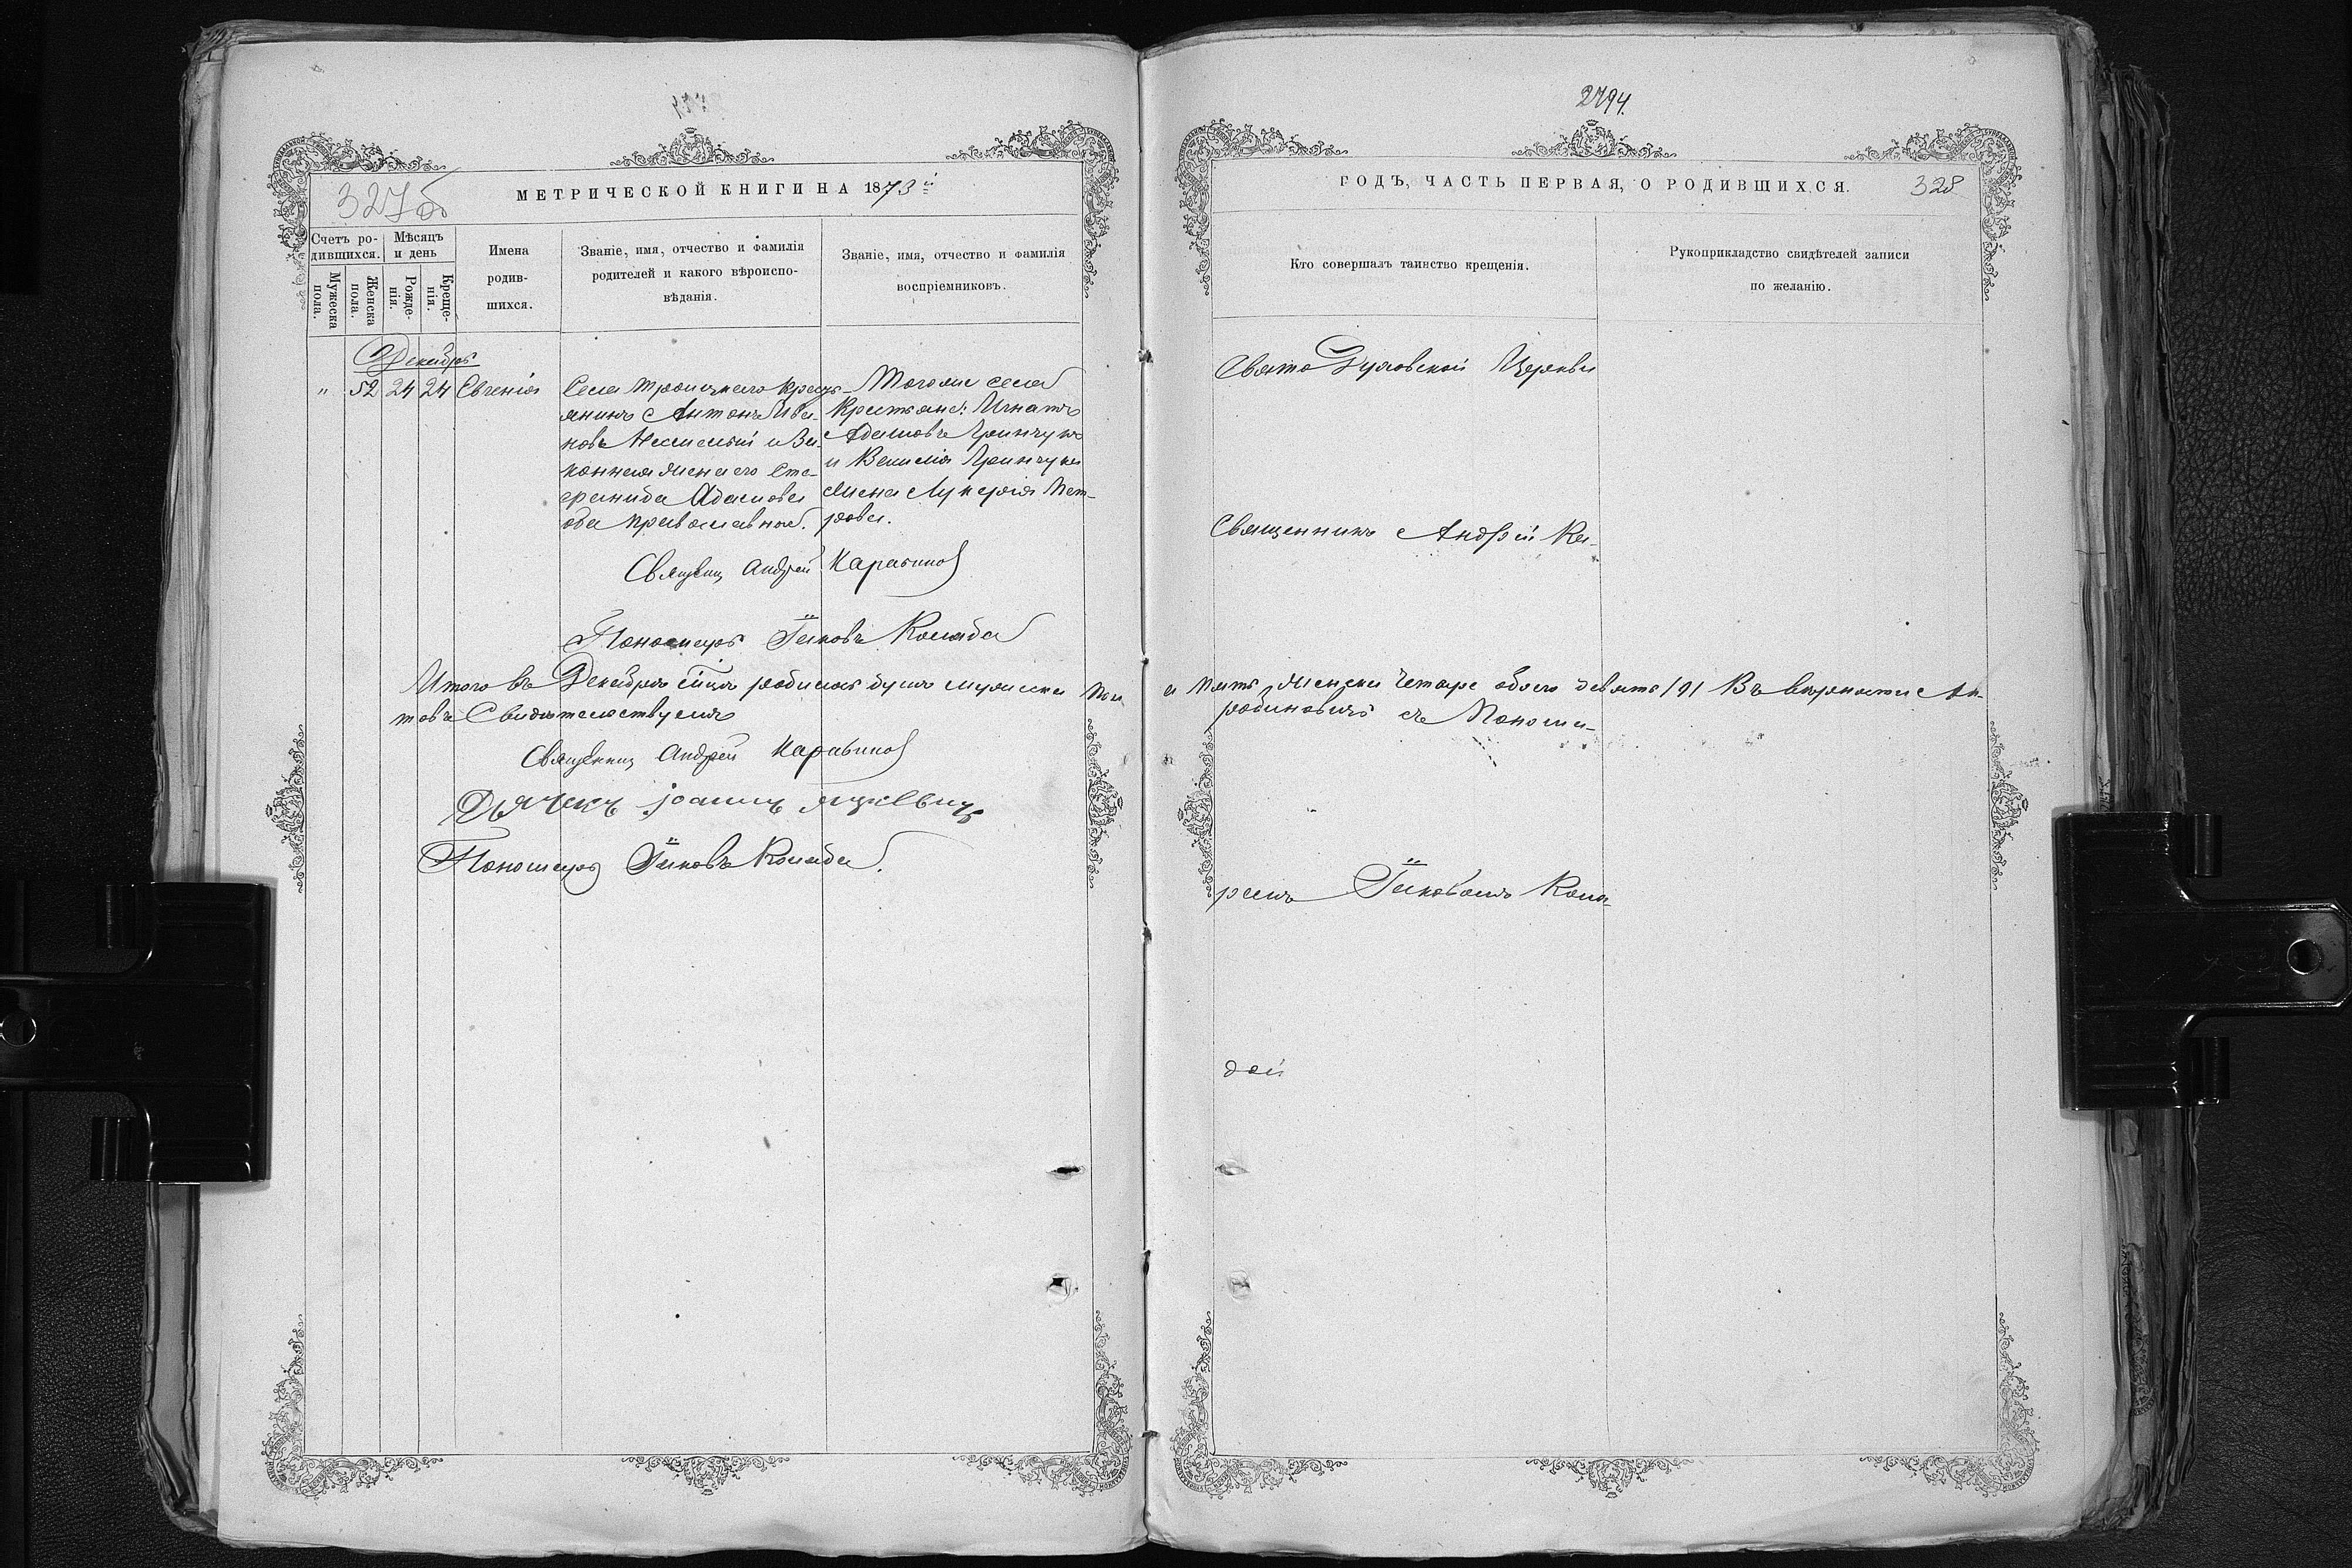 2794.
327об
МЕТРИЧЕСКОЙ КНИГИ НА 1873й
Счетъ ро-
дившихся.
Мужеска
пола.
Женска
пола.
Мѣсяцъ
и день
Рожде-
нія.
Креще-
нія.
Имена
родив-
шихся.
Званіе, имя, отчество и фамилія
родителей и какого вѣроиспо-
вѣданія.
Званіе, имя, отчество и фамилія
воспріемниковъ.
Декабрь
" 52 24 24 Евгенія
Села Троицкаго Крестъ-
янинъ Антонъ Ива-
новъ и За-
конная жена его Сте-
фанида Адамова
оба православные.
Тогоже села
Крестьяне: Игнатъ
Адамовъ Гринчукъ
и Гринчука
жена Лукерія Пет-
рова.
Священникъ Андрей Карабинов
Пономарь Іаковъ Коляда
Итого въ Декабрѣ мѣсяцѣ родилось душъ мужеска по-
товъ Свидѣтельствуемъ
Священникъ Андрей Карабинов
Дячекъ Іоаннъ
Пономарь Іаковъ Коляда.
ГОДЪ, ЧАСТЬ ПЕРВАЯ, О РОДИВШИХСЯ.
328
Кто совершалъ таинство крещенія.
Рукоприкладство свидѣтелей записи
по желанію.
Свято Духовской Церкви
Священникъ Андрей Ка-
а пять женска четыре обоего девять /9/ Въ вѣрности
рабиновичъ съ Понома-
ремъ Іаковомъ Коля-
дой